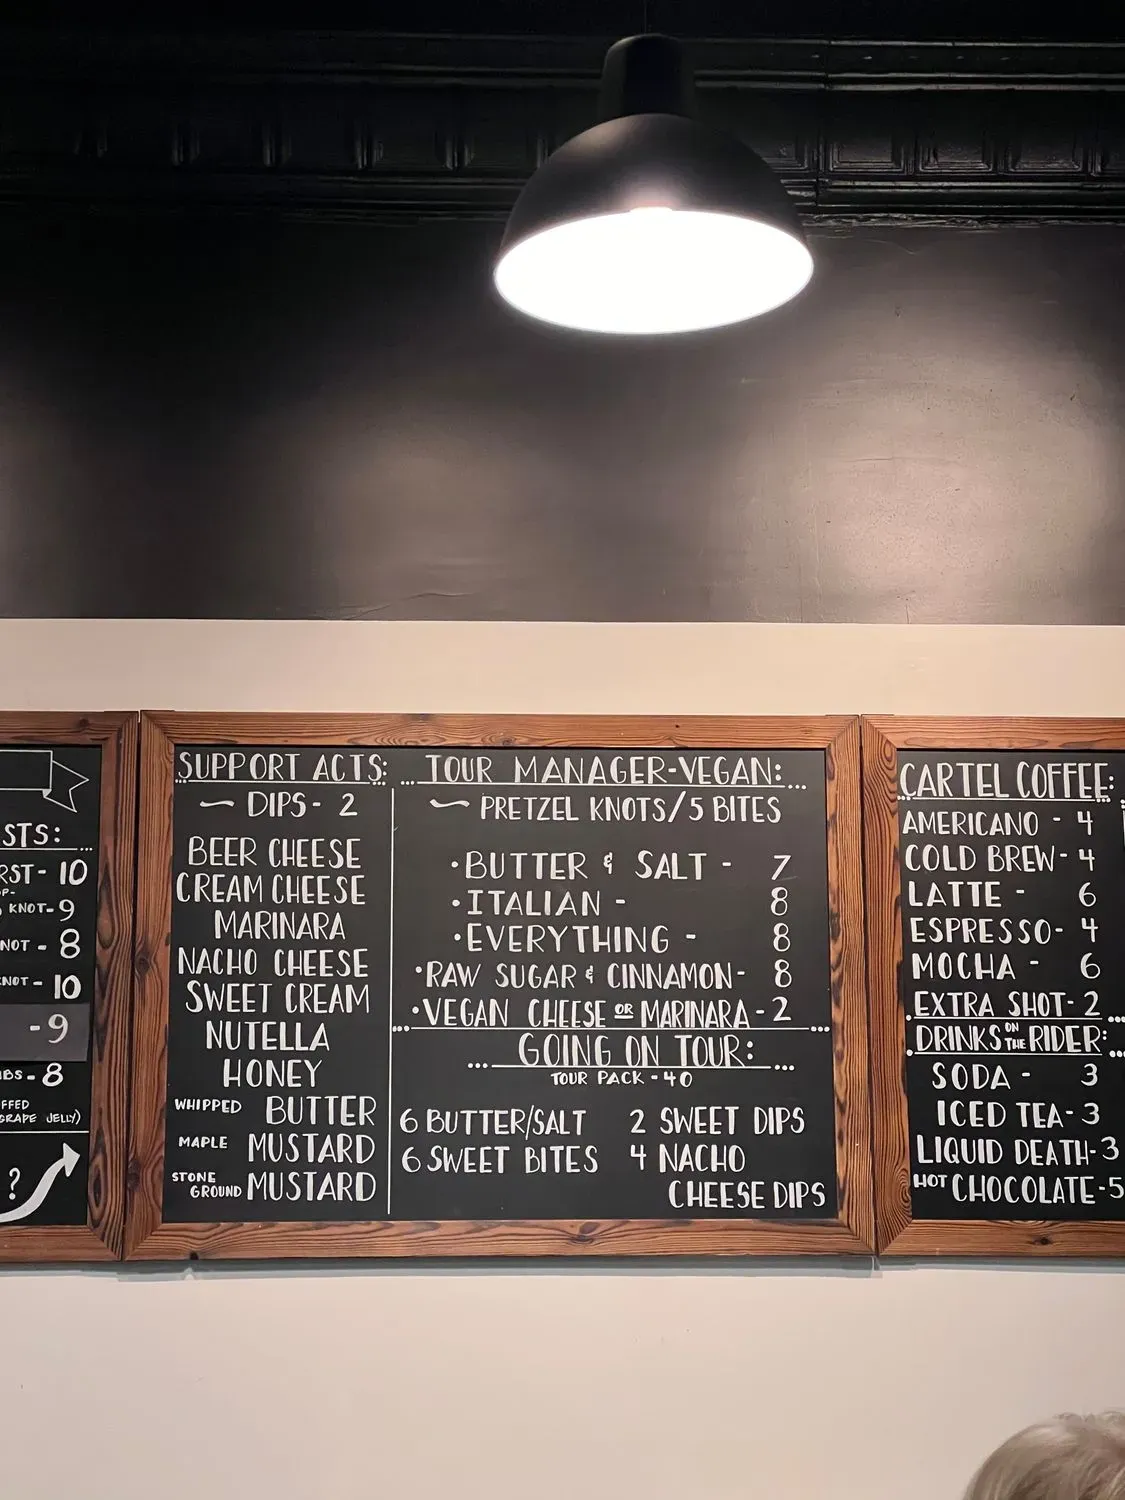 STS:
RST - 10
KNOT - 9
NOT - 8
KNOT - 10
- 9
BS - 8
FFED
GRAPE JELLY)
?
SUPPORT ACTS:
DIPS - 2
BEER CHEESE
CREAM CHEESE
MARINARA
NACHO CHEESE
SWEET CREAM
NUTELLA
HONEY
WHIPPED BUTTER
MAPLE MUSTARD
STONE GROUND MUSTARD
TOUR MANAGER-VEGAN:
PRETZEL KNOTS/5 BITES
• BUTTER & SALT - 7
• ITALIAN - 8
• EVERYTHING - 8
• RAW SUGAR & CINNAMON - 8
• VEGAN CHEESE OR MARINARA - 2
GOING ON TOUR:
TOUR PACK - 40
6 BUTTER/SALT 2 SWEET DIPS
6 SWEET BITES 4 NACHO
CHEESE DIPS
CARTEL COFFEE:
AMERICANO - 4
COLD BREW - 4
LATTE - 6
ESPRESSO - 4
MOCHA - 6
EXTRA SHOT - 2
DRINKS ON THE RIDER:
SODA - 3
ICED TEA - 3
LIQUID DEATH - 3
HOT CHOCOLATE - 5